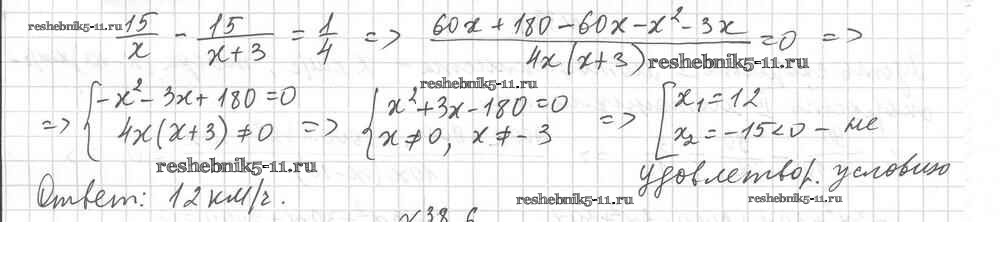 reshebnik5-11.ru
15/x - 15/(x+3) = 1/4 => (60x + 180 - 60x - x² - 3x)/(4x(x+3)) = 0 =>
reshebnik5-11.ru
reshebnik5-11.ru
=> { -x² - 3x + 180 = 0 => { x² + 3x - 180 = 0 => [ x₁ = 12
4x(x+3) ≠ 0 x ≠ 0, x ≠ -3 x₂ = -15 < 0 - не
reshebnik5-11.ru
удовлетвор. условию
Ответ: 12 км/г.
reshebnik5-11.ru
reshebnik5-11.ru